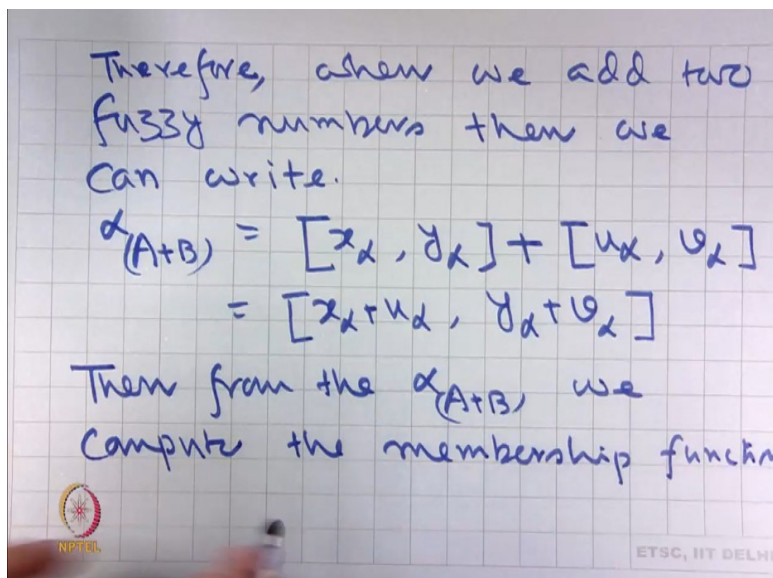 Therefore, when we add two
fuzzy numbers then we
can write.
α(A+B) = [xα, yα] + [uα, vα]
= [xα+uα, yα+vα]
Then from the α(A+B) we
compute the membership functin
NPTEL
ETSC, IIT DELHI